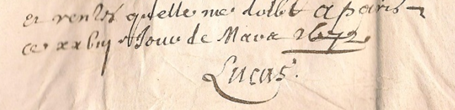 et rentes quelle me doibt a paris
ce xxbiij e Jour de Mars 1672
Lucas